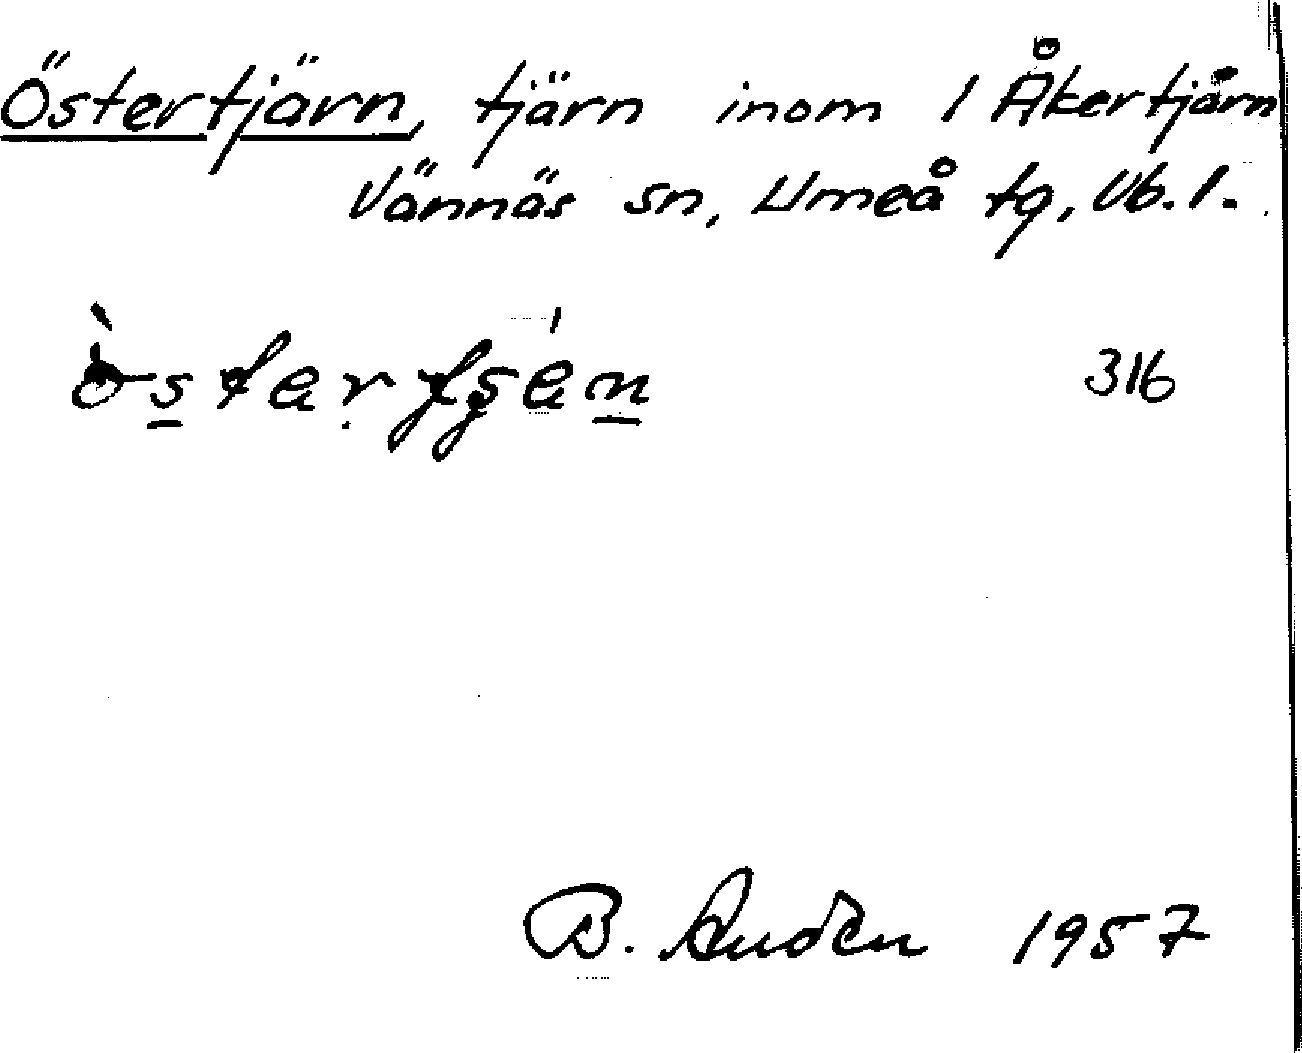 Östertjärn, tjärn inom 1 Åkertjärn
Vännäs sn, Umeå tg, Vb. l.
316
B. Audén 1957